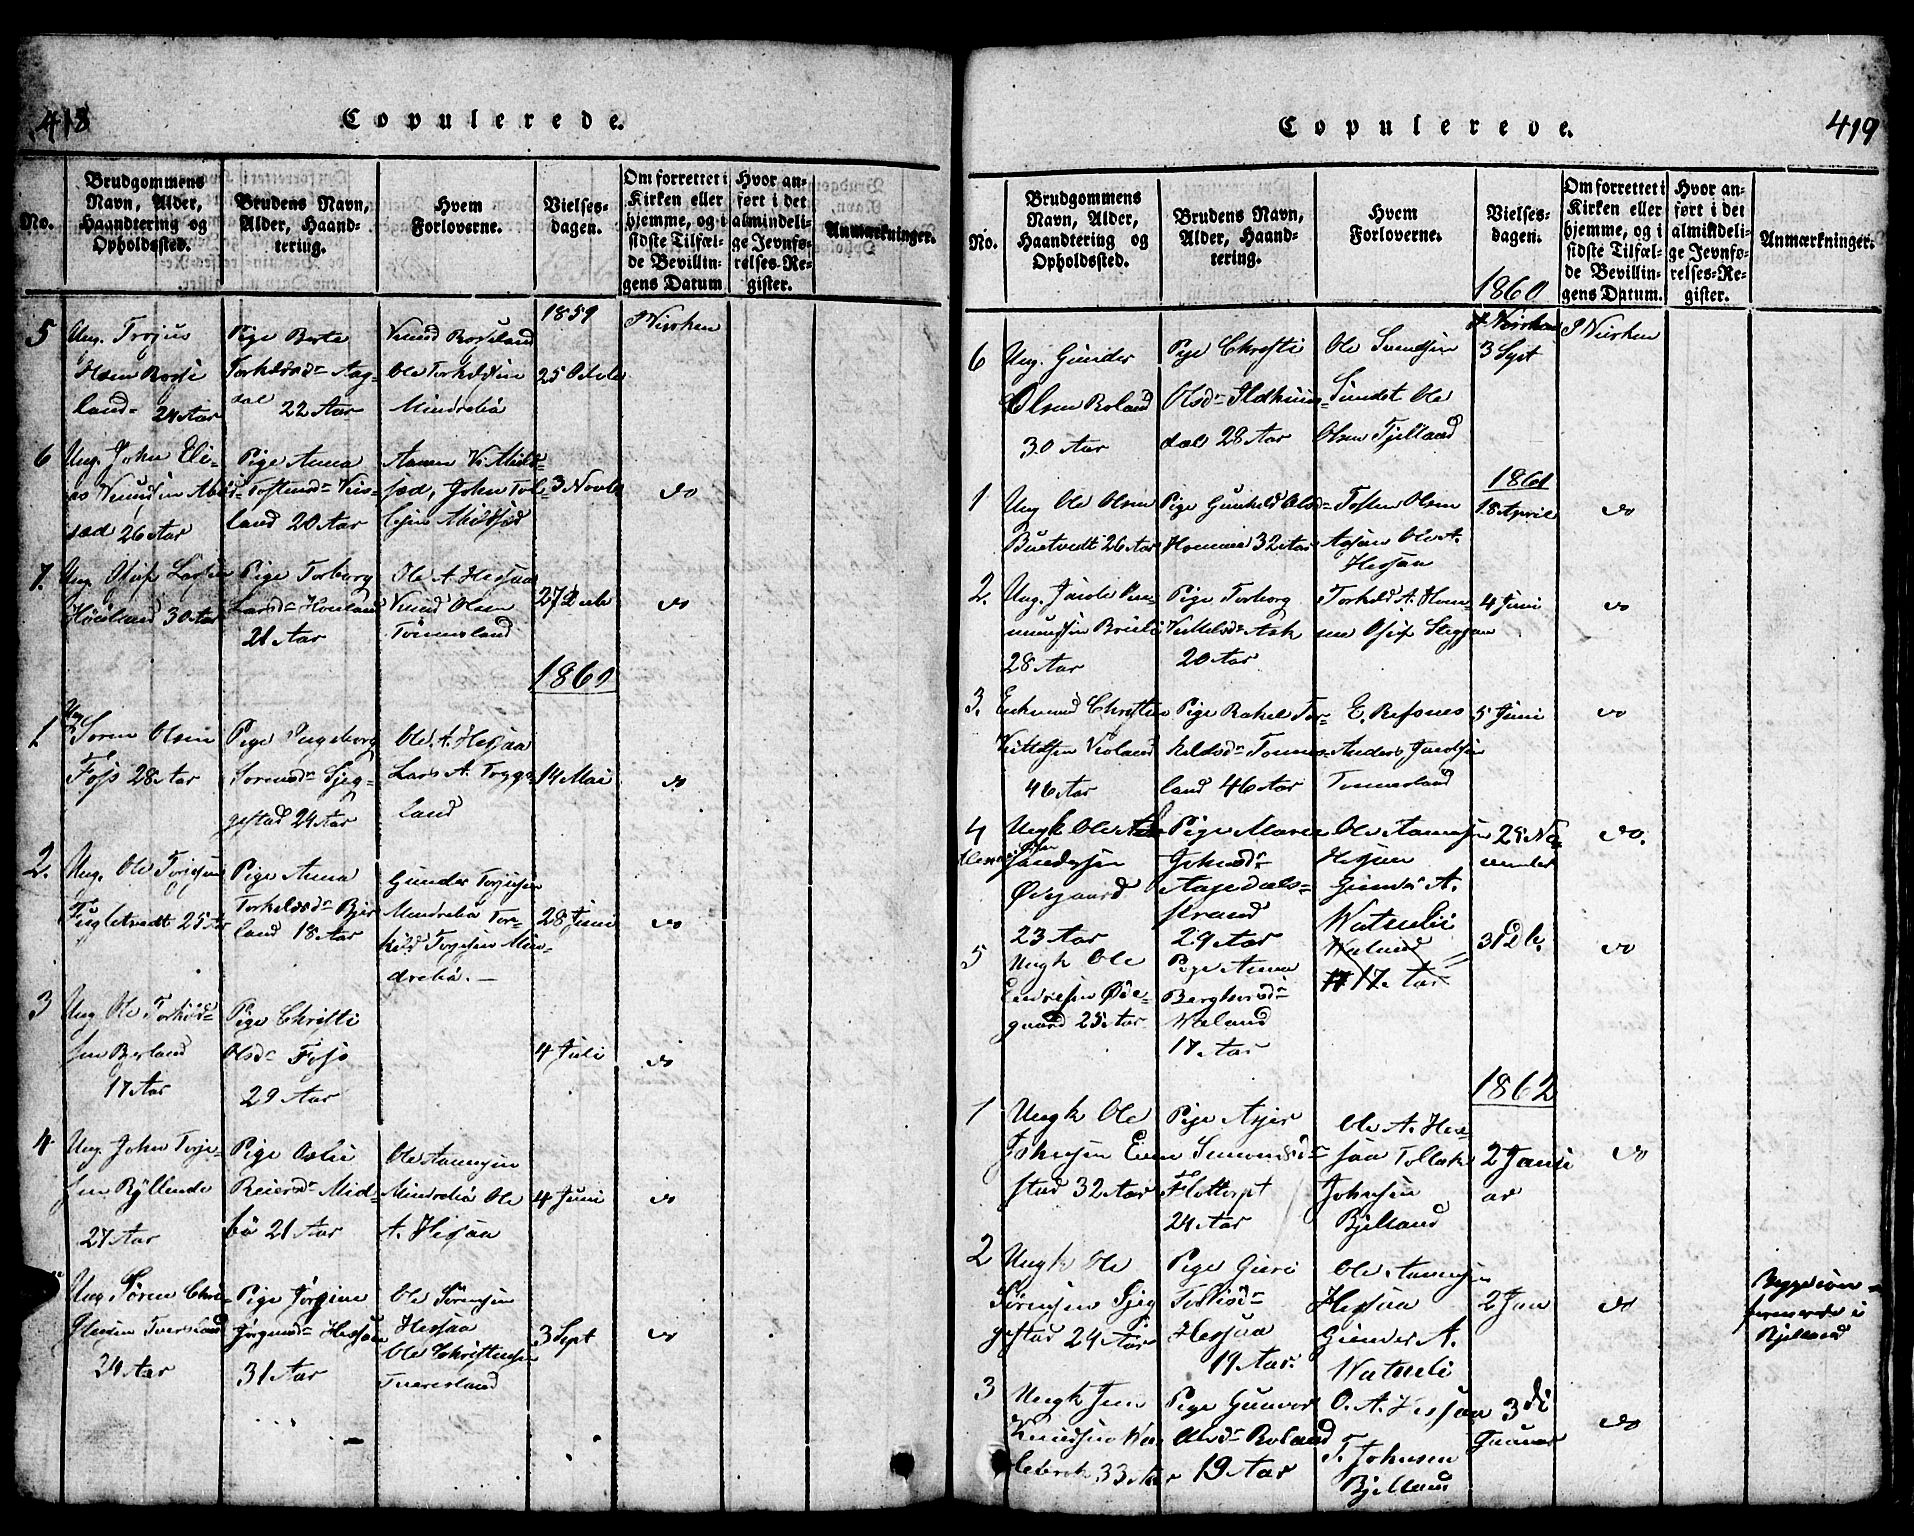 418
Copulerede.
No.
Brudgommens
Navn, Alder,
Haandtering og
Opholdssted.
Brudens Navn,
Alder, Haand-
tering.
Hvem
Forloverne.
Vielses-
dagen.
Om forrettet i
Kirken eller
hjemme, og i
sidste Tilfæl-
de Bevillin-
gens Datum
Hvor an-
ført i det
almindeli-
ge Jevnfø-
relses-Re-
gister.
Anmærkninger.
1859
5
Ung. Terjus
Olsen Rose
land 24 Aar
Pige Berte
Torkelsdr Aag-
dal 22 Aar
Knud Roseland
Ole Torkelsen
Mindrebø
25 Octobr
I Kirken
6
Ung. John Eli-
as Knudsen
26 Aar
Pige Anna
Tostensdr
land 20 Aar
John Tol-
3 Novbr
do
7.
Ung. Oluf Larsen
Høieland 30 Aar
Pige Torborg
Larsdr Houland
21 Aar
Ole A. Hessaa
Knud Olsen
Tønnesland
27 Decbr
do
1860
1.
Ung. Søren Olsen
Foss 28 Aar
Pige Ingeborg
Sørensdr Sjeg-
gestad 24 Aar
Ole A. Hessaa
Lars A. Trygs-
land
14 Mai
do
2.
Ung. Ole Torjesen
Fugletvedt 25 Aar
Pige Anna
Torkelsdr Bjer
land 18 Aar
Gunder Torjusen
Mindrebø Tor-
kild Torgesen Min-
drebø.
28 Juni
do
3
Ung Ole Torkels-
sen Berland
17 Aar
Pige Christi
Olsdr Foss
29 Aar
4 Juli
do
4
Ung. John Terje-
sen Kyllende
27 Aar
Pige Oslie
Reiersdr Mid-
bø 21 Aar
Ole Aanensen
Mindrebø Ole
A. Hessaa
4 Juni
do
Ung. Søren Chri-
stensen Tveresland
24 Aar
Pige Jørgine
Jørgensdr Hessaa
31 Aar
Ole Sørensen
Hessaa
Ole Christensen
Tveresland
3 Sept
do
Copulerede.
419
No.
Brudgommens
Navn, Alder,
Haandtering og
Opholdssted.
Brudens Navn,
Alder, Haand-
tering.
Hvem
Forloverne.
Vielses-
dagen.
Om forrettet i
Kirken eller
hjemme, og i
sidste Tilfæl-
de Bevillin-
gens Datum.
Hvor an-
ført i det
almindeli-
ge Jevnfø-
relses-Re-
gister.
Anmærkninger.
1860
6
Ung. Gunder
Olsen Roland
30 Aar
Pige Christi
Olsdr Ildhuus-
dal 28 Aar
Ole Svendsen
Sundet Ole
Olsen Fjelland
3 Sept
I Kirken
1861
1
Ung Ole Olsen
Buetvedt 26 Aar
Pige Gunhild Olsdr
Homme 32 Aar
Tosten Olsen
Ole A.
Hessaa
18 April
do
2.
Ung. Jacob
28 Aar
Pige Torborg
Kittelsdr Ask
20 Aar
Torkild A. Hom-
me
4 Juni
do
3.
Enkemand Christen
46 Aar
Pige Rakel Tor-
kildsdr Tønnes-
land 46 Aar
E. Refsnes
Anders Jacobsen
Tønnesland
5 Juni
do
4
Ungk Ole
Øvegaard
23 Aar
Pige Maren
Johnsdr
Aagedals-
strand
29 Aar
Ole Aanensen
Hessaa
Gunder A.
Watnelie
25 No-
vember
do.
5
Ungk Ole
Endresen Øde-
gaard 25 Aar
Pige Anna
Berghorsdr
Weland
17 Aar
Weland
17 Aar
31 Db.
do
1862
1
Ungk Ole
Johnsen Ein-
stad 32 Aar
Pige Asjer
Simonsdr
Flottorp
24 Aar
Ole A. Hes-
saa Tollak
Johnsen
Bjelland
2 Janu
ar
do
2
Ungk Ole
Sørensen Sjeg
gestad 24 Aar
Pige Guro
Terkisdr
Hessaa
19 Aar.
Ole Aanensen
Hessaa
Gunder A.
Watneli
2 Jan
do
Bjelland
3
Ungk Jens
Knudsen
33 Aar
Pige Gunvor
Olsdr Roland
19 Aar
O. A. Hessaa
T. Johnsen
Bjelland
3di
Januar
do